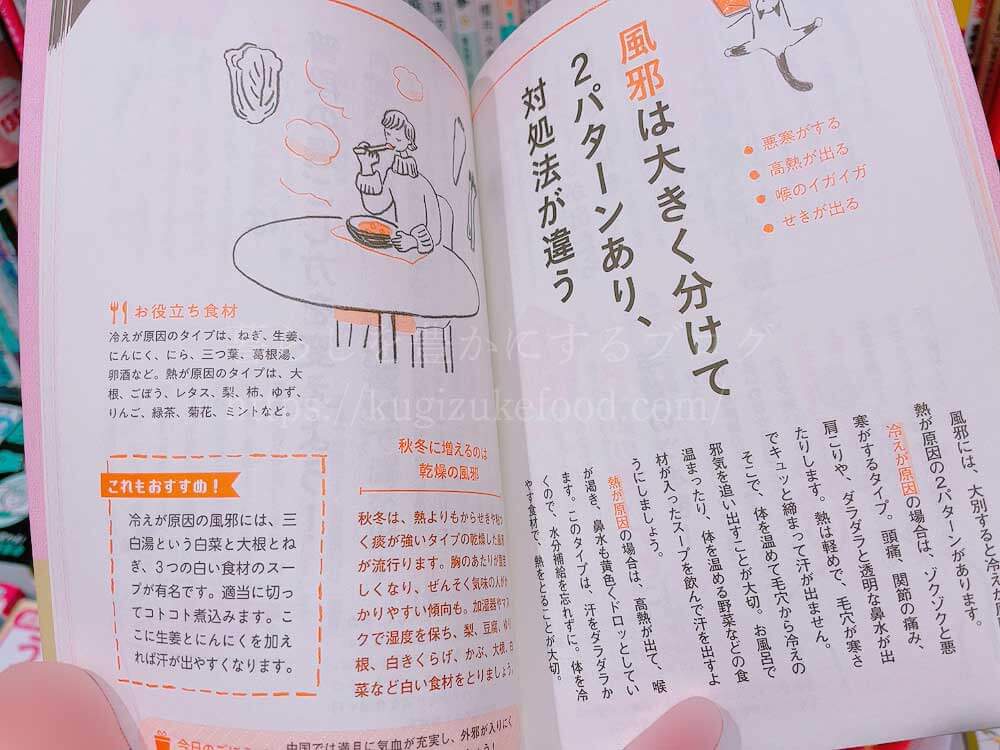 風邪は大きく分けて
2パターンあり、
対処法が違う
悪寒がする
高熱が出る
喉のイガイガ
せきが出る
風邪には、大別すると冷えが
熱が原因の2パターンがあります。
冷えが原因の場合は、ゾクゾクと悪
寒がするタイプ。頭痛、関節の痛み、
肩こりや、ダラダラと透明な鼻水が出
たりします。熱は軽めで、毛穴が寒さ
でキュッと締まって汗が出ません。
そこで、体を温めて毛穴から冷えの
邪気を追い出すことが大切。お風呂で
温まったり、体を温める野菜などの食
材が入ったスープを飲んで汗を出すよ
うにしましょう。
熱が原因の場合は、高熱が出て、喉
が渇き、鼻水も黄色くドロッとしてい
ます。このタイプは、汗をダラダラか
くので、水分補給を忘れずに。体を冷
やす食材で、熱をとることが大切。
お役立ち食材
冷えが原因のタイプは、ねぎ、生姜、
にんにく、にら、三つ葉、葛根湯、
卵酒など。熱が原因のタイプは、大
根、ごぼう、レタス、梨、柿、ゆず、
りんご、緑茶、菊花、ミントなど。
これもおすすめ!
冷えが原因の風邪には、三
白湯という白菜と大根とね
ぎ、3つの白い食材のスー
プが有名です。適当に切っ
てコトコト煮込みます。こ
こに生姜とにんにくを加え
れば汗が出やすくなります。
秋冬に増えるのは
乾燥の風邪
秋冬は、熱よりもからせきや粘つ
く痰が強いタイプの乾燥した風邪
が流行ります。胸のあたりが
しくなり、ぜんそく気味の人が
かりやすい傾向も。加湿器やマス
クで湿度を保ち、梨、豆腐、ゆり
根、白きくらげ、かぶ、大根、白
菜など白い食材をとりましょう。
今日のごほうび
中国では満月に気血が充実し、外邪が入りにく
くらしを豊かにするブログ
https://kugizukefood.com/